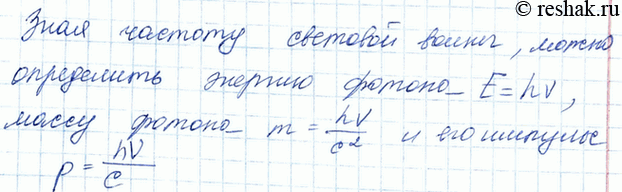 © reshak.ru
Зная частоту световой волны, можно
определить энергию фотона – E = hν,
массу фотона – m = hν/c² и его импульс
p = hν/c